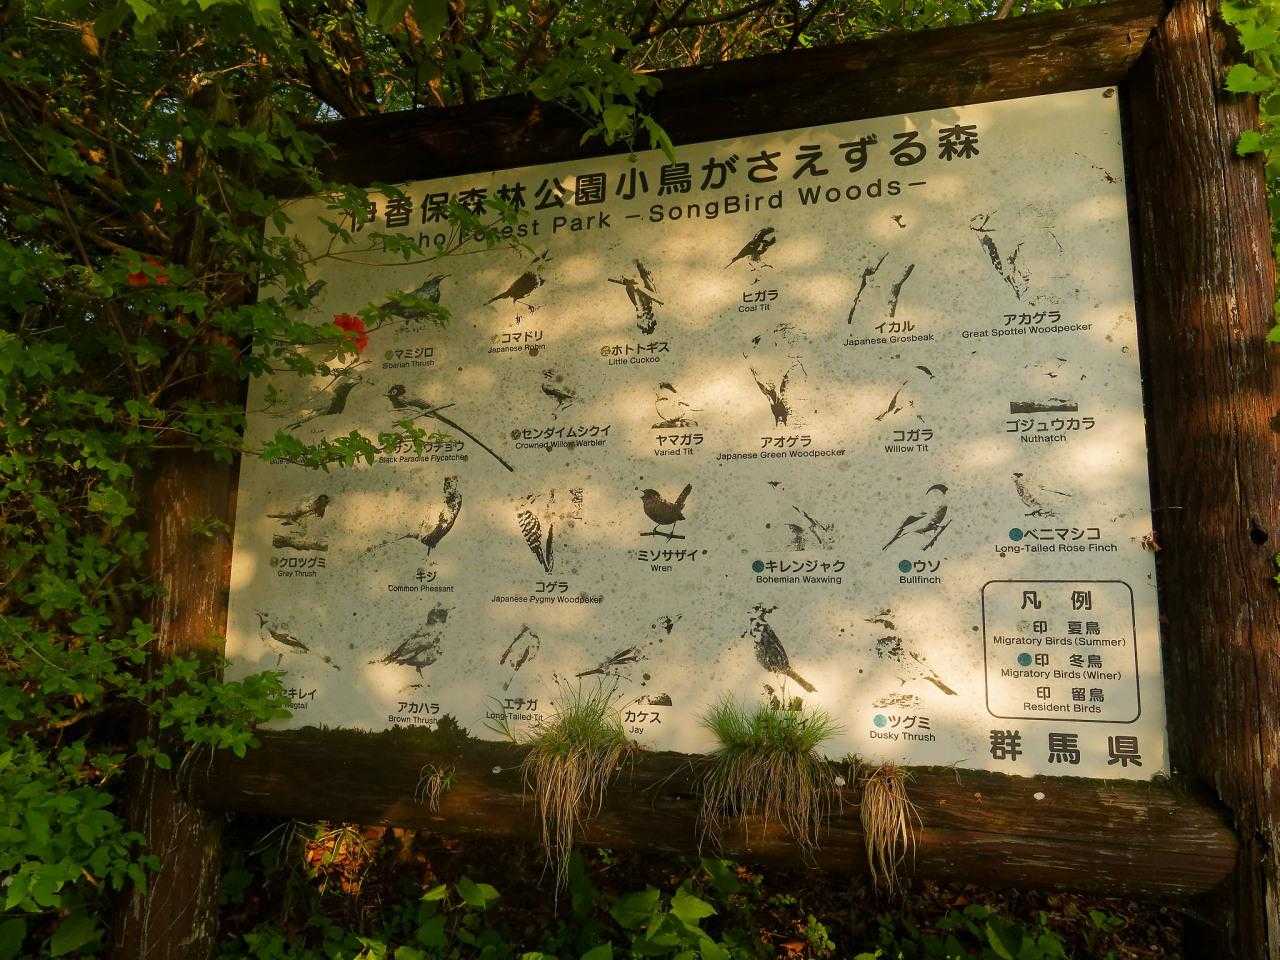 伊香保森林公園小鳥がさえずる森
Forest Park －SongBird Woods－
マミジロ
Siberian Thrush
コマドリ
Japanese Robin
ホトトギス
Little Cuckoo
ヒガラ
Coal Tit
イカル
Japanese Grosbeak
アカゲラ
Great Spottel Woodpecker
Black Paradise Flycatcher
センダイムシクイ
Crowned Willow Warbler
ヤマガラ
Varied Tit
アオゲラ
Japanese Green Woodpecker
コガラ
Willow Tit
ゴジュウカラ
Nuthatch
クロツグミ
Gray Thrush
キジ
Common Pheasant
コゲラ
Japanese Pygmy Woodpeker
ミソサザイ
Wren
キレンジャク
Bohemian Waxwing
ウソ
Bullfinch
ベニマシコ
Long-Tailed Rose Finch
セキレイ
アカハラ
Brown Thrush
エナガ
Long-Tailed Tit
カケス
Jay
ツグミ
Dusky Thrush
凡 例
印 夏鳥
Migratory Birds (Summer)
印 冬鳥
Migratory Birds (Winer)
印 留鳥
Resident Birds
群馬県